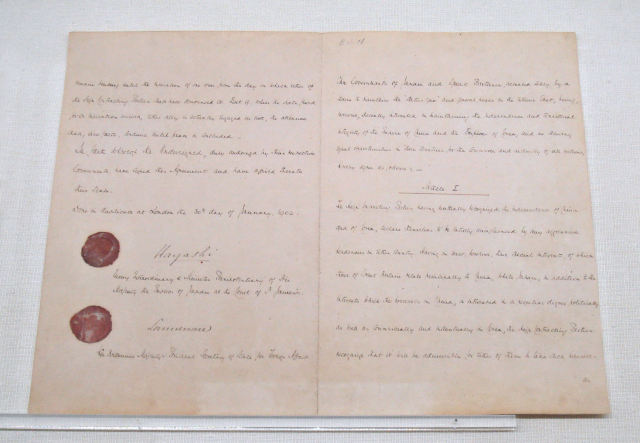 remain binding until the expiration of one year from the day on which either of
the High Contracting Parties shall have denounced it. But if, when the date fixed
for its expiration arrives, either ally is actually engaged in war, the alliance
shall, ipso facto, continue until peace is concluded. -
In faith whereof the Undersigned, duly authorized by their respective
Governments, have signed this Agreement and have affixed thereto
their Seals.
Done in duplicate at London the 30th day of January, 1902.
Hayashi
Envoy Extraordinary & Minister Plenipotentiary of His
Majesty the Emperor of Japan at the Court of St James's.
Lansdowne
His Britannic Majesty's Principal Secretary of State for Foreign Affairs
The Governments of Japan and Great Britain, actuated solely by a
desire to maintain the status quo and general peace in the extreme East, being,
moreover, specially interested in maintaining the independence and territorial
integrity of the Empire of China and the Empire of Corea, and in securing
equal opportunities in those Countries for the Commerce and industry of all nations,
hereby agree as follows: -
Article I
The High Contracting Parties having mutually recognized the independence of China
and of Corea, declare themselves to be entirely uninfluenced by any aggressive
tendencies in either Country. Having in view, however, their special interests, of which
those of Great Britain relate principally to China, while Japan, in addition to the
interests which she possesses in China, is interested in a peculiar degree politically
as well as commercially and industrially in Corea, the High Contracting Parties
recognize that it will be admissible for either of them to take such measures